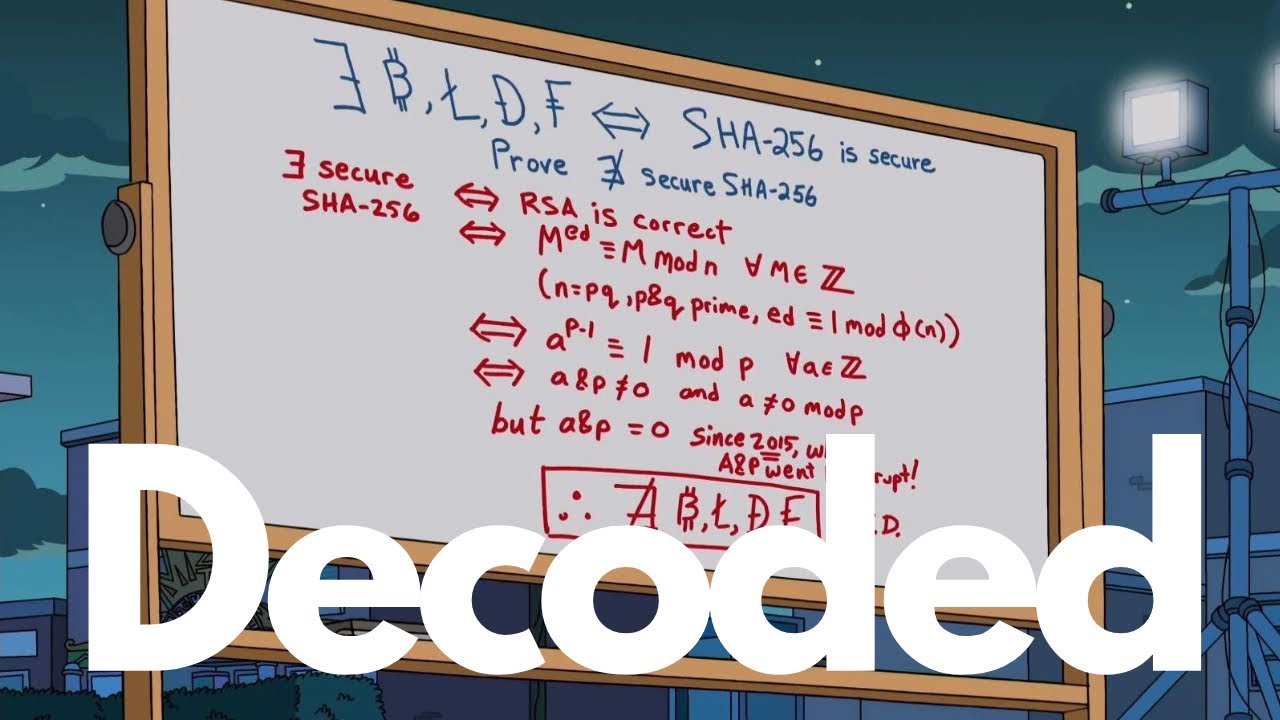 ∃ ₿, Ł, Đ, ₣ ⟺ SHA-256 is secure
Prove ∄ secure SHA-256
∃ secure SHA-256 ⟺ RSA is correct
⟺ M^ed ≡ M mod n ∀ M ∈ ℤ
(n=pq, p&q prime, ed ≡ 1 mod ϕ(n))
⟺ a^p-1 ≡ 1 mod p ∀a ∈ ℤ
⟺ a&p ≠ 0 and a ≠ 0 mod p
but a&p = 0 since 2015,
A&P went
∴ ∄ ₿, Ł, Đ ₣
Decoded